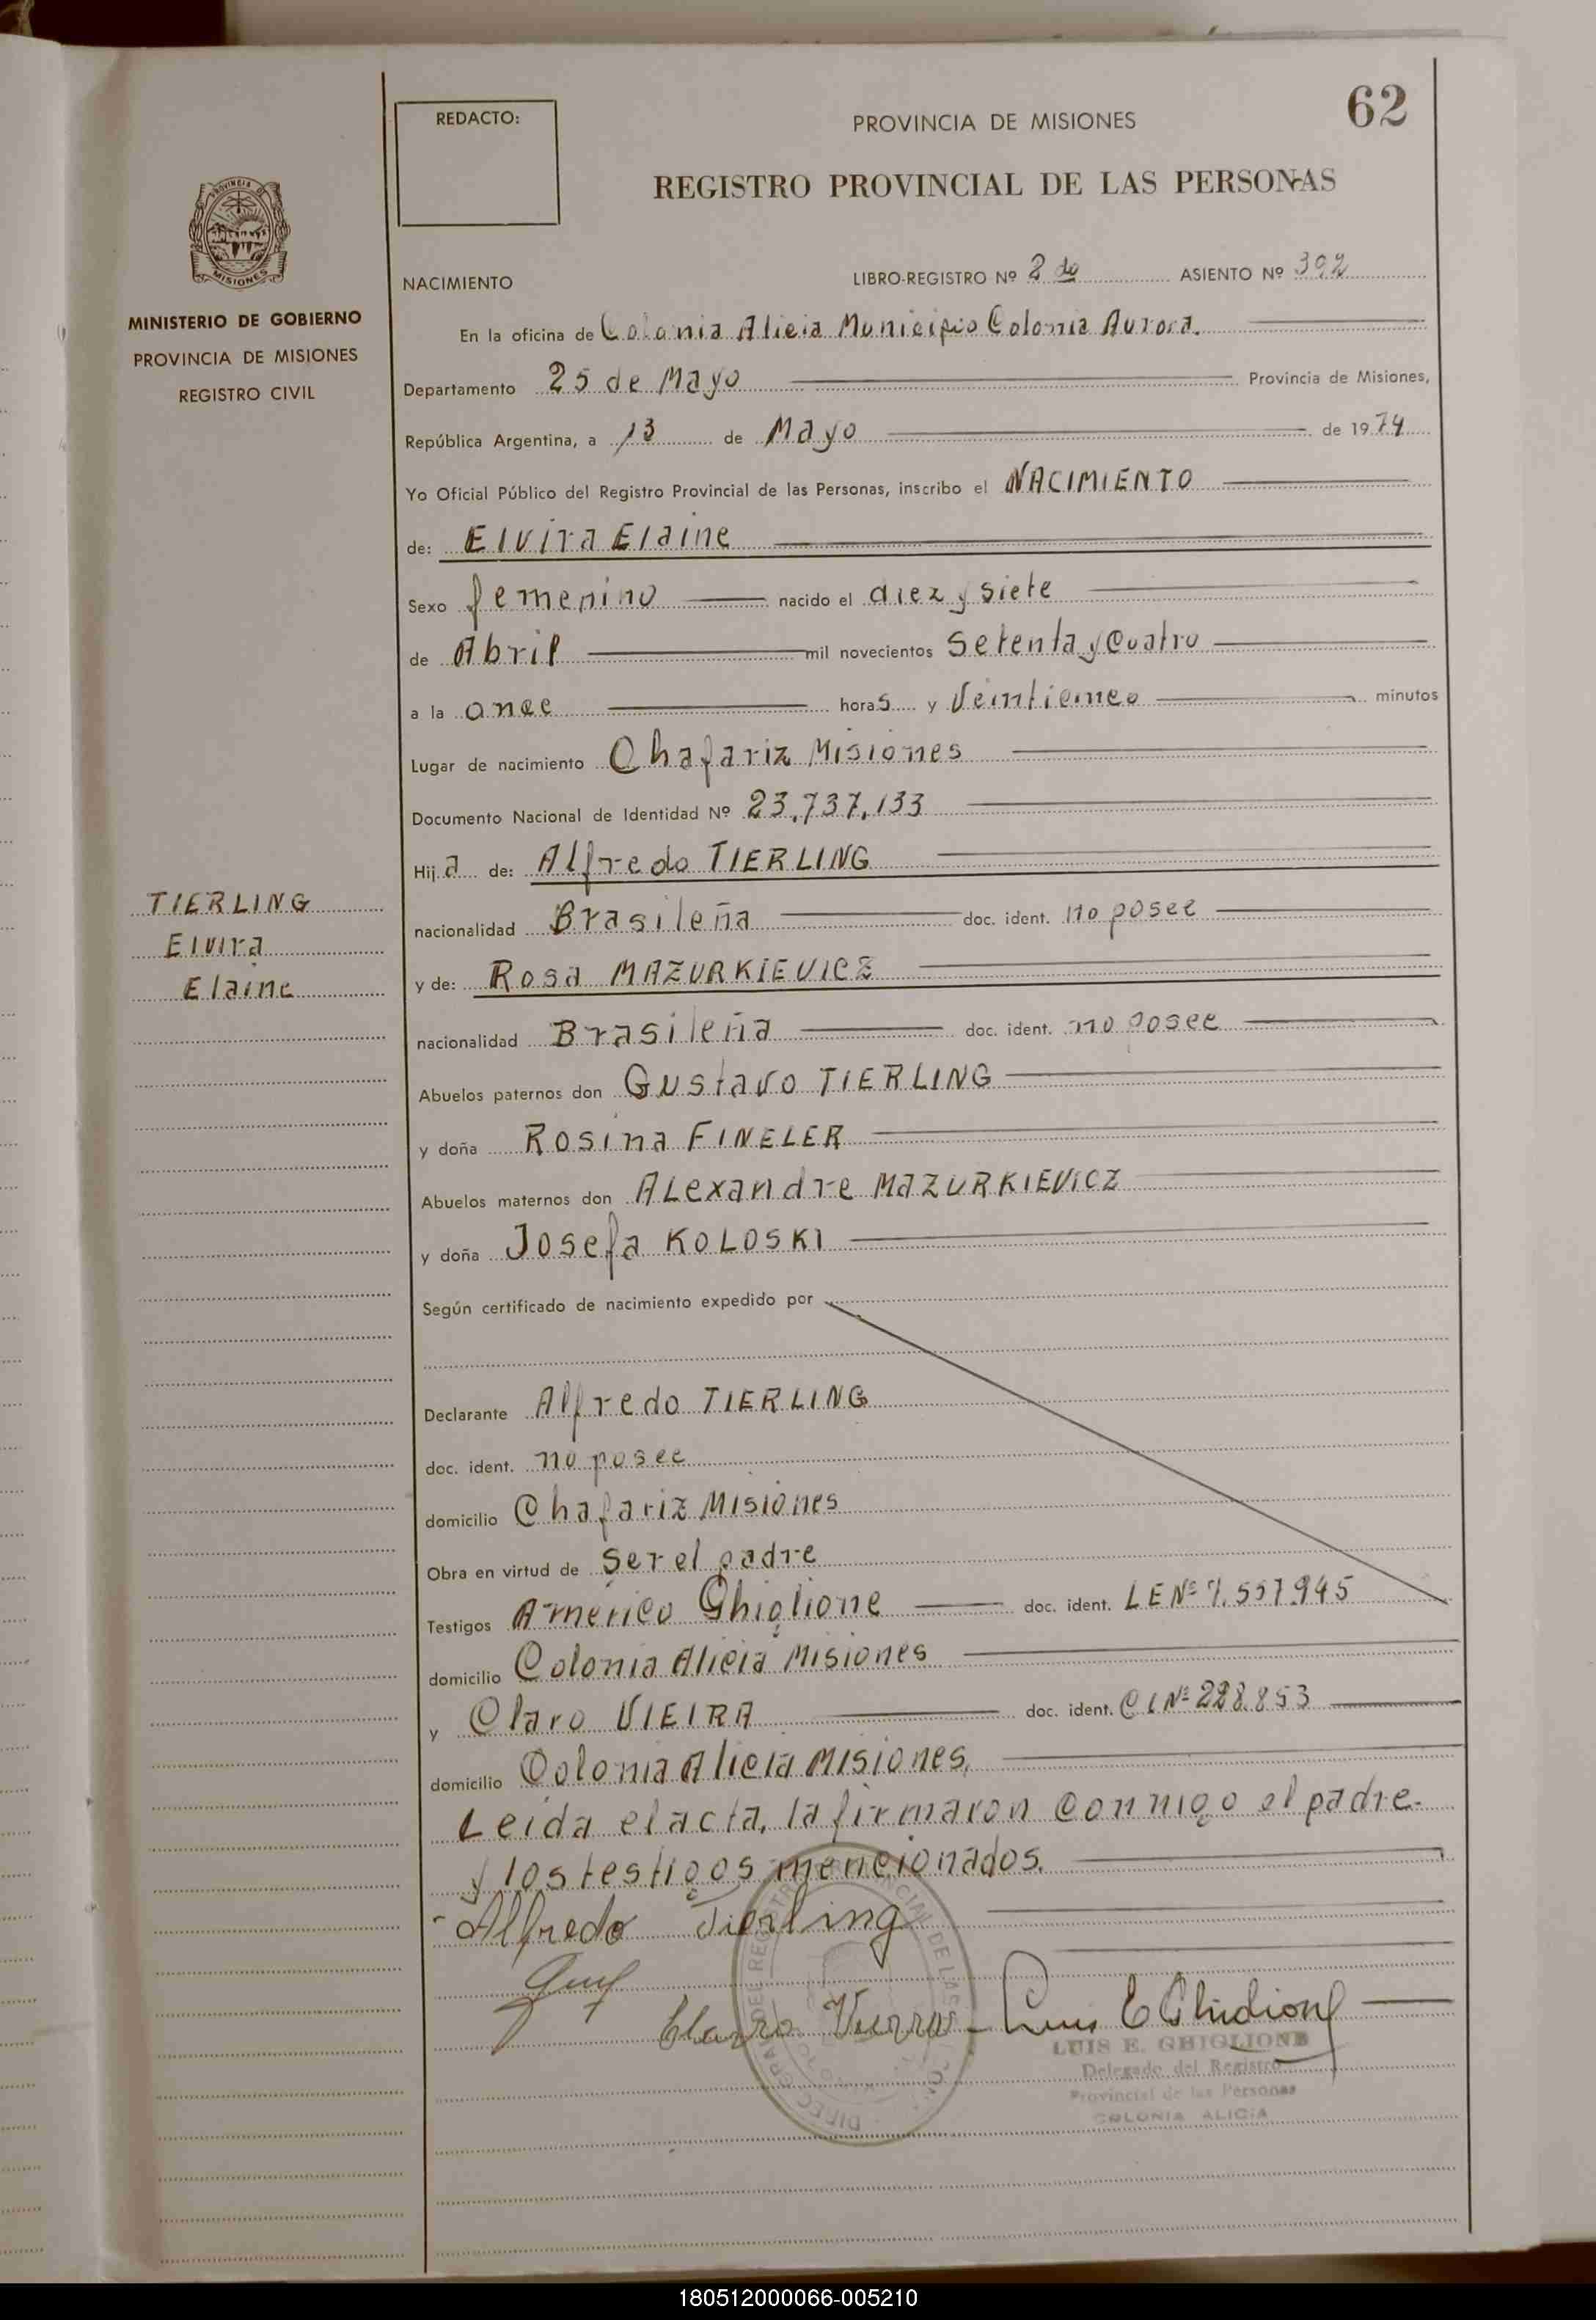 62
REDACTO:
PROVINCIA DE MISIONES
REGISTRO PROVINCIAL DE LAS PERSONAS
PROVINCIA DE
MISIONES
MINISTERIO DE GOBIERNO
PROVINCIA DE MISIONES
REGISTRO CIVIL
NACIMIENTO LIBRO-REGISTRO Nº 2 do ASIENTO Nº 392
En la oficina de Colonia Alicia Municipio Colonia Aurora.
Departamento 25 de Mayo Provincia de Misiones,
República Argentina, a 13 de Mayo de 1974
Yo Oficial Público del Registro Provincial de las Personas, inscribo el NACIMIENTO
de: Elvira Elaine
Sexo femenino nacido el diez y siete
de Abril mil novecientos Setenta y Cuatro
a la once horas y Veinticinco minutos
Lugar de nacimiento Chafariz Misiones
Documento Nacional de Identidad Nº 23.737.133
Hija de: Alfredo TIERLING
nacionalidad Brasileña doc. ident. no posee
y de: Rosa MAZURKIEVICZ
nacionalidad Brasileña doc. ident. no posee
TIERLING
Elvira
Elaine
Abuelos paternos don Gustavo TIERLING
y doña Rosina FINELER
Abuelos maternos don ALexandre MAZURKIEVICZ
y doña Josefa KOLOSKI
Según certificado de nacimiento expedido por
Declarante Alfredo TIERLING
doc. ident. no posee
domicilio Chafariz Misiones
Obra en virtud de Ser el padre
Testigos Américo Ghiglione doc. ident. L E Nº 7.557.945
domicilio Colonia Alicia Misiones
y Claro VIEIRA doc. ident. C I Nº 228.853
domicilio Colonia Alicia Misiones.
Leida el acta, la firmaron Conmigo el padre
y los testigos mencionados.
Alfredo Tierling
Claro Vierra Luis E Ghiglione
LUIS E. GHIGLIONE
Delegado del Registro
Provincial de las Personas
COLONIA ALICIA
180512000066-005210